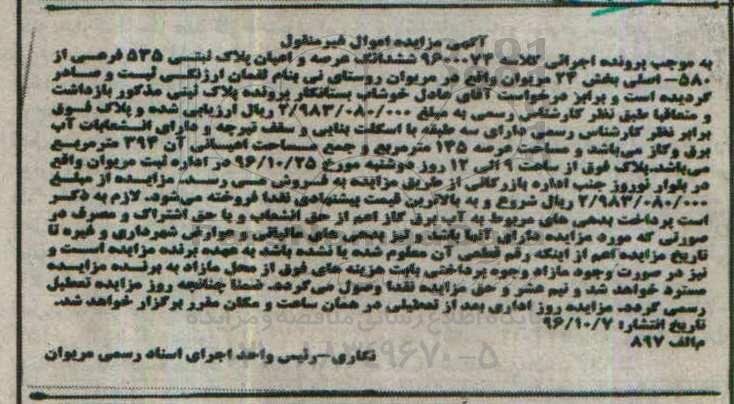 آگهی مزایده اموال غیرمنقول
به موجب پرونده اجرائی کلاسه ۹۶۰۰۰۷۳ ششدانگ عرصه و اعیان پلاک ثبتی ۵۳۵ فرعی از
۵۸۰- اصلی بخش ۲۳ مریوان واقع در مریوان روستای نی بنام لقمان ارژنگی ثبت و صادر
گردیده است و برابر درخواست آقای عادل خوشاب بستانکار پرونده پلاک ثبتی مذکور بازداشت
و متعاقبا طبق نظر کارشناس رسمی به مبلغ ۲/۹۸۳/۰۸۰/۰۰۰ ریال ارزیابی شده و پلاک فوق
برابر نظر کارشناس رسمی دارای سه طبقه با اسکلت بنایی و سقف تیرچه و دارای انشعابات آب
برق وگاز می‌باشد و مساحت عرصه ۱۳۵ مترمربع و جمع مساحت اعیانی آن ۳۹۳ مترمربع
می‌باشد.پلاک فوق از ساعت ۹ الی ۱۲ روز دوشنبه مورخ ۹۶/۱۰/۲۵ در اداره ثبت مریوان واقع
در بلوار نوروز جنب اداره بازرگانی از طریق مزایده به فروش می رسد. مزایده از مبلغ
۲/۹۸۳/۰۸۰/۰۰۰ ریال شروع و به بالاترین قیمت پیشنهادی نقدا فروخته می‌شود. لازم به ذکر
است پرداخت بدهی های مربوط به آب برق گاز اعم از حق انشعاب و یا حق اشتراک و مصرف در
صورتی که مورد مزایده دارای آنها باشد و نیز بدهی های مالیاتی و عوارض شهرداری و غیره تا
تاریخ مزایده اعم از اینکه رقم قطعی آن معلوم شده یا نشده باشد به عهده برنده مزایده است و
نیز در صورت وجود مازاد وجوه پرداختی بابت هزینه های فوق از محل مازاد به برنده مزایده
مسترد خواهد شد و نیم عشر و حق مزایده نقدا وصول می‌گردد. ضمنا چنانچه روز مزایده تعطیل
رسمی گردد. مزایده روز اداری بعد از تعطیلی در همان ساعت و مکان مقرر برگزار خواهد شد.
تاریخ انتشار: ۹۶/۱۰/۷
م‌الف ۸۹۷
نگاری-رئیس واحد اجرای اسناد رسمی مریوان